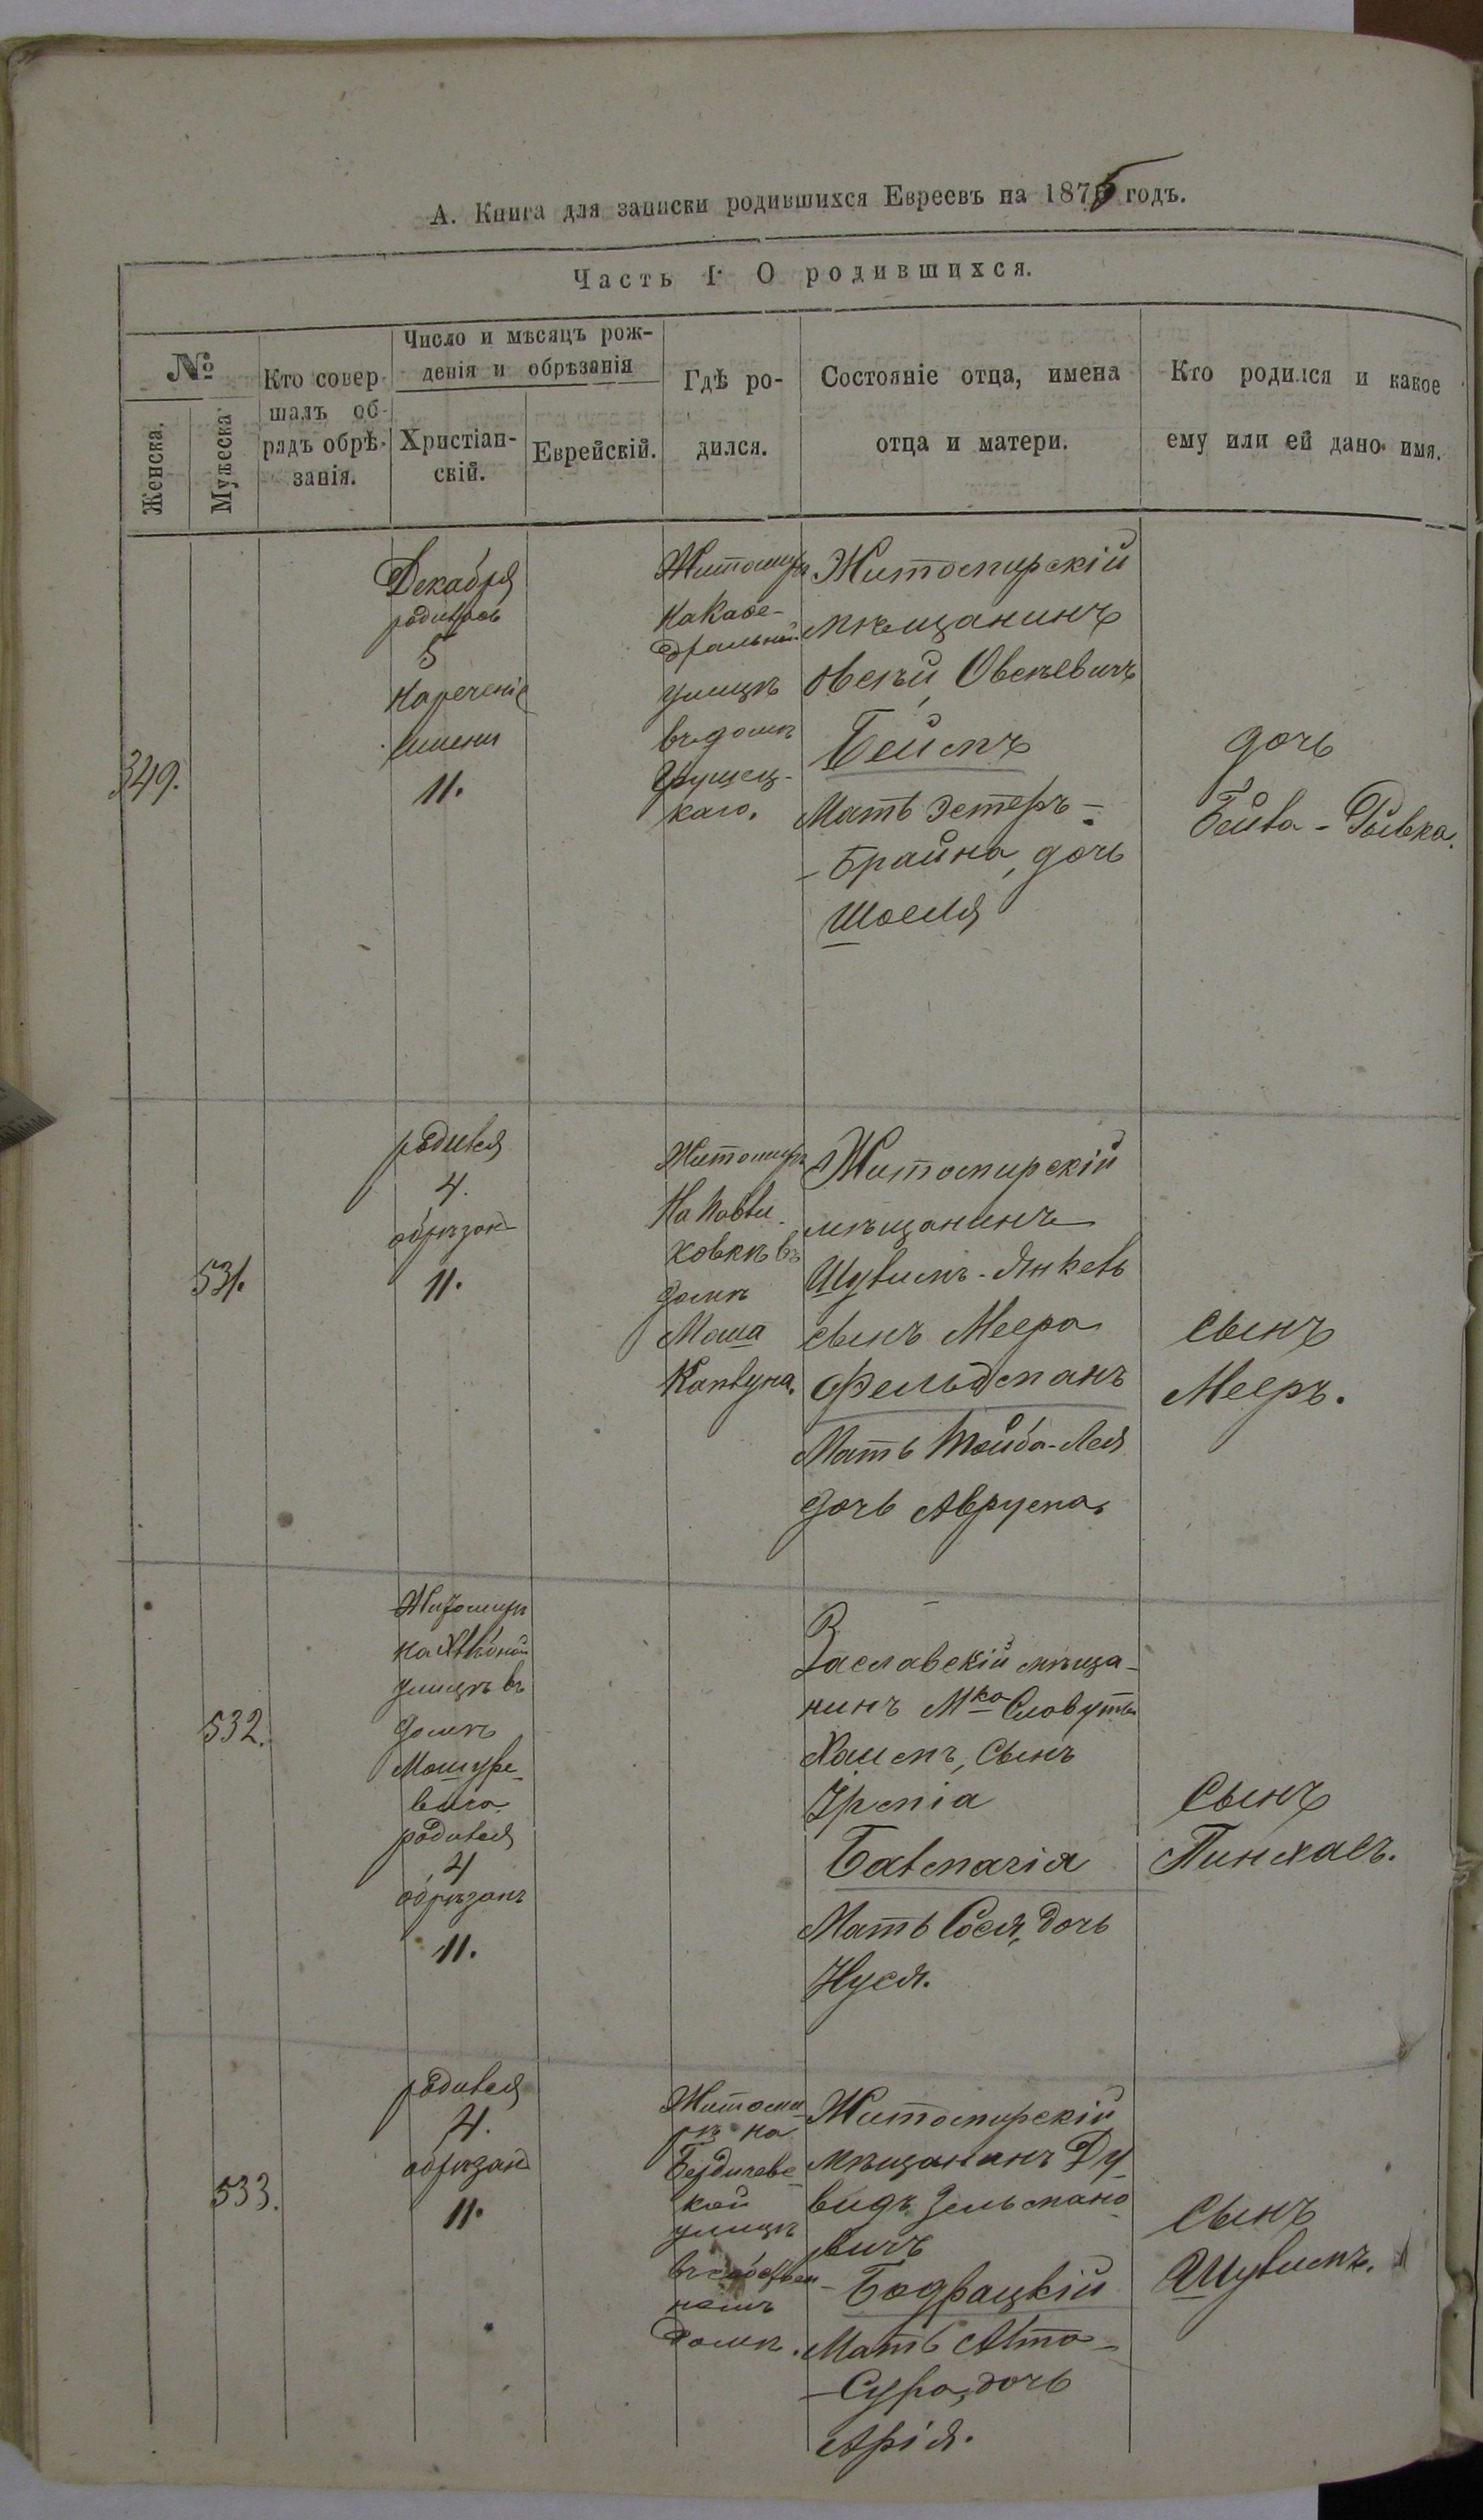 А. Книга для записки родившихся Евреевъ на 1875 годъ.
Часть I. О родившихся.
№
Женска.
Мужеска
Кто совер-
шалъ об-
рядъ обрѣ-
занія.
Число и мѣсяцъ рож-
денія и обрѣзанія
Христіан-
скій.
Еврейскій.
Гдѣ ро-
дился.
Состояніе отца, имена
отца и матери.
Кто родился и какое
ему или ей дано имя.
349.
Декабря
родилась
5
Нареченіе
имени
11.
Житомиръ
на Каѳе-
дральной
улицѣ
въ домѣ
Грущец-
каго.
Житомирскій
мѣщанинъ
Овсѣевичъ
Беймъ
Мать Эстеръ-
-Брайна, дочь
Шоеля
дочь
Бейла-Рывка.
531.
родился
4.
обрѣзанъ
11.
Житомиръ
На
въ
домѣ
Житомирскій
мѣщанинъ
Шулимъ-Янкель
сынъ Меера
Фельдманъ
Мать Тойба-Лея
дочь Аврума.
сынъ
Мееръ.
532.
Житомиръ
на Хлѣбной
улицѣ въ
домѣ
родился
4
обрѣзанъ
11.
Заславскій мѣща-
нинъ Мка Славуты
Хаимъ, сынъ
Мать Сося, дочь
Нуся.
сынъ
Пинхасъ.
533.
родился
4.
обрѣзанъ
11.
Житоми-
рѣ на
Бердичевс-
кой
улицѣ
въ собствен-
номъ
домѣ.
Житомирскій
мѣщанинъ Ду-
видъ Зельмано-
вичъ
Бодрацкій
Мать
-Сура, дочь
Арія.
сынъ
Шулимъ.